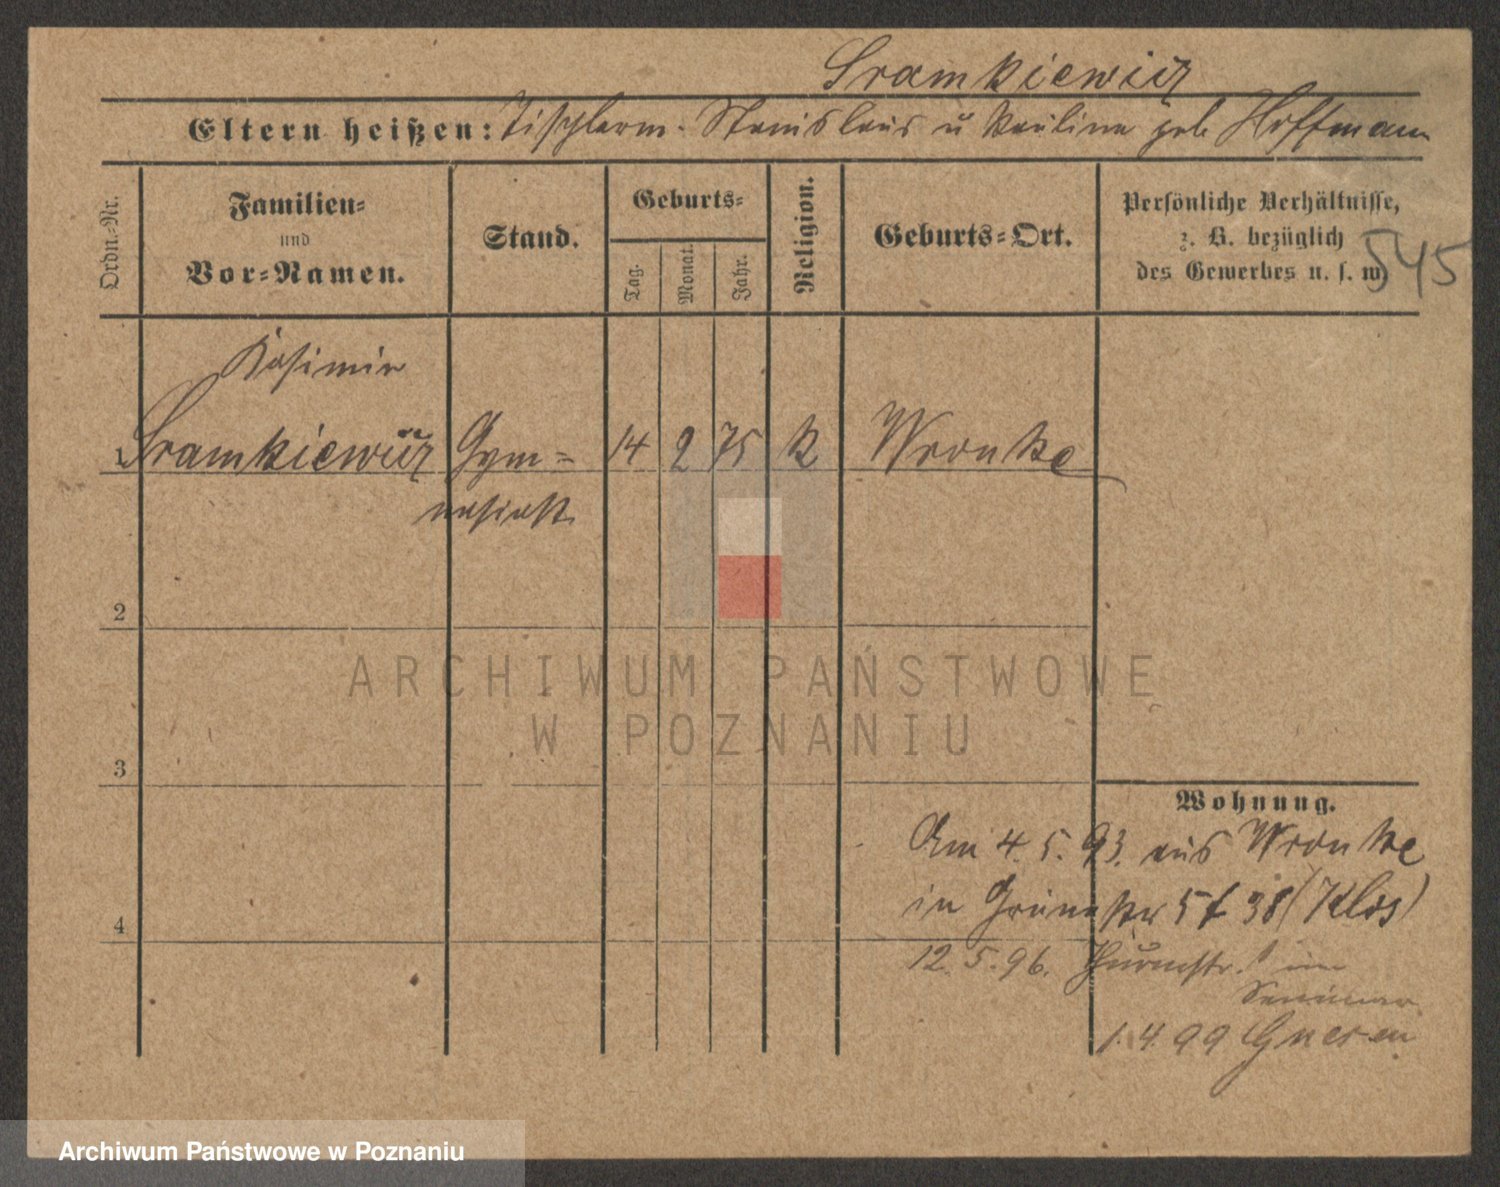 Sramkiewicz
Eltern heißen: Tischlerm. Stanislaus u Paulina geb Hoffmann
Ordn.-Nr.
Familien-
und
Vor-Namen.
Stand.
Geburts-
Tag.
Monat.
Jahr.
Religion.
Geburts-Ort.
Persönliche Verhältnisse,
z. B. bezüglich
des Gewerbes u. s. w.
545
Kasimir
1 Sramkiewicz Gym= 14 2 75 k Wronke
nasiast
2
3
4
Wohnung.
Am 4. 5. 93. aus Wronke
in Grünestr 5 f 38 (Klos)
12. 5. 96. Thurmstr. im
Seminar
1. 4. 99 Gnesen
ARCHIWUM PAŃSTWOWE
W POZNANIU
Archiwum Państwowe w Poznaniu